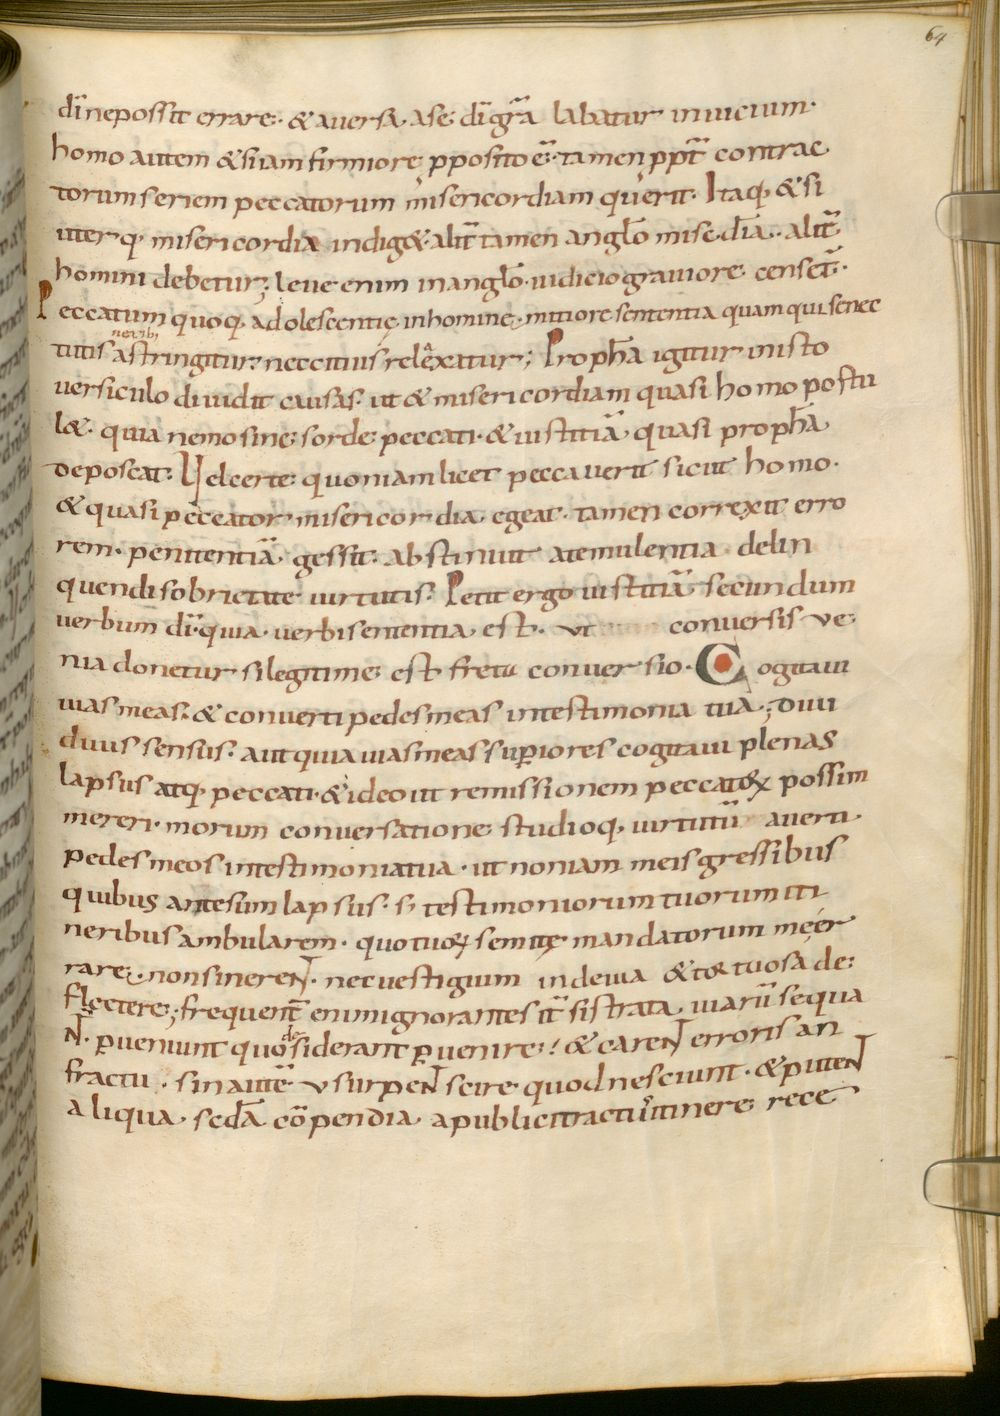 64
dīnepossit errare. & aversa ase dīgrā labatur invicium.
homo autem & siiam firmiore pposito ē. tamen ppt̄ contrac
torum seriem peccatorum misericordiam querit. Itaq; & si
uterq; misericordia indig&. alit̄ tamen anglo misc̄dia. alit̄
homini debetur; leve enim in anglo iudicio graviore censet̄.
Peccatum quoq; adolescentię inhomine. mitiore sententia quam qui senec
neribus
tutis astringitur. nec citius relaxatur; Propha igitur inisto
versiculo dividit causas. ut & misericordiam quasi homo postu
l&. quia nemo sine sorde peccati. & iustitiā quasi propha
deposcat. Vel certe quoniam licet peccaverit sicut homo.
& quasi peccator misericordia egeat. tamen correxit erro
rem. penitentiā gessit. abstinuit atemulentia delin
quendi sobrietate virtutis. Petit ergo iustitiā secundum
verbum dī. quia verbi sententia est. ut conversis ve
nia donetur silegitime est freta conversio. Cogitavi
vias meas. & converti pedes meas intestimonia tua; Divi
dimus sensus. aut quia vias meas supiores cogitavi plenas
lapsus atq; peccati. & ideo ut remissionem peccatoꝝ possim
mereri. morum conversatione studioq; virtutū averti
pedes meos intestimonia tua. ut non iam meis gressibus
quibus ante sum lapsus. s; testimoniorum tuorum iti
neribus ambularem. quo tuoꝝ semitę mandatorum me er
rare. non sinerent. nec vestigium in devia & tortuosa de
flectere; frequent̄ enim ignorantes it̄ si strata viarū sequa
nt. pveniunt quo desiderant pvenire. & carent erroris an
fractu. sin autē usurpent scire quod nesciunt. & putent
aliqua sectā cōpendia a publici tractu itinere rece